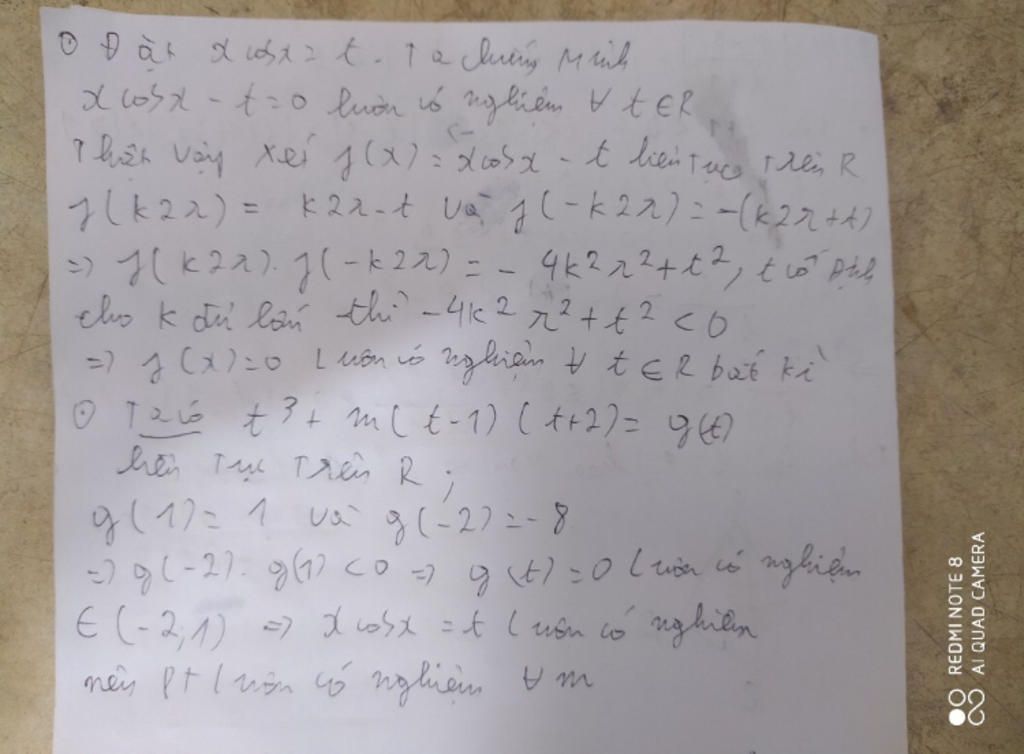 ⊙ Đặt x cosx = t. Ta chứng minh
x cosx - t = 0 luôn có nghiệm ∀ t ∈ R
Thật vậy xét f(x) = x cosx - t liên tục trên R
f(k2π) = k2π - t và f(-k2π) = -(k2π + t)
=> f(k2π). f(-k2π) = - 4k²π² + t², t cố định
cho k đủ lớn thì - 4k² π² + t² < 0
=> f(x) = 0 luôn có nghiệm ∀ t ∈ R bất kì
⊙ Ta có t³ + m(t-1)(t+2) = g(t)
liên tục trên R ;
g(1) = 1 và g(-2) = -8
=> g(-2). g(1) < 0 => g(t) = 0 luôn có nghiệm
∈ (-2,1) => x cosx = t luôn có nghiệm
nên pt luôn có nghiệm ∀ m
REDMI NOTE 8
AI QUAD CAMERA